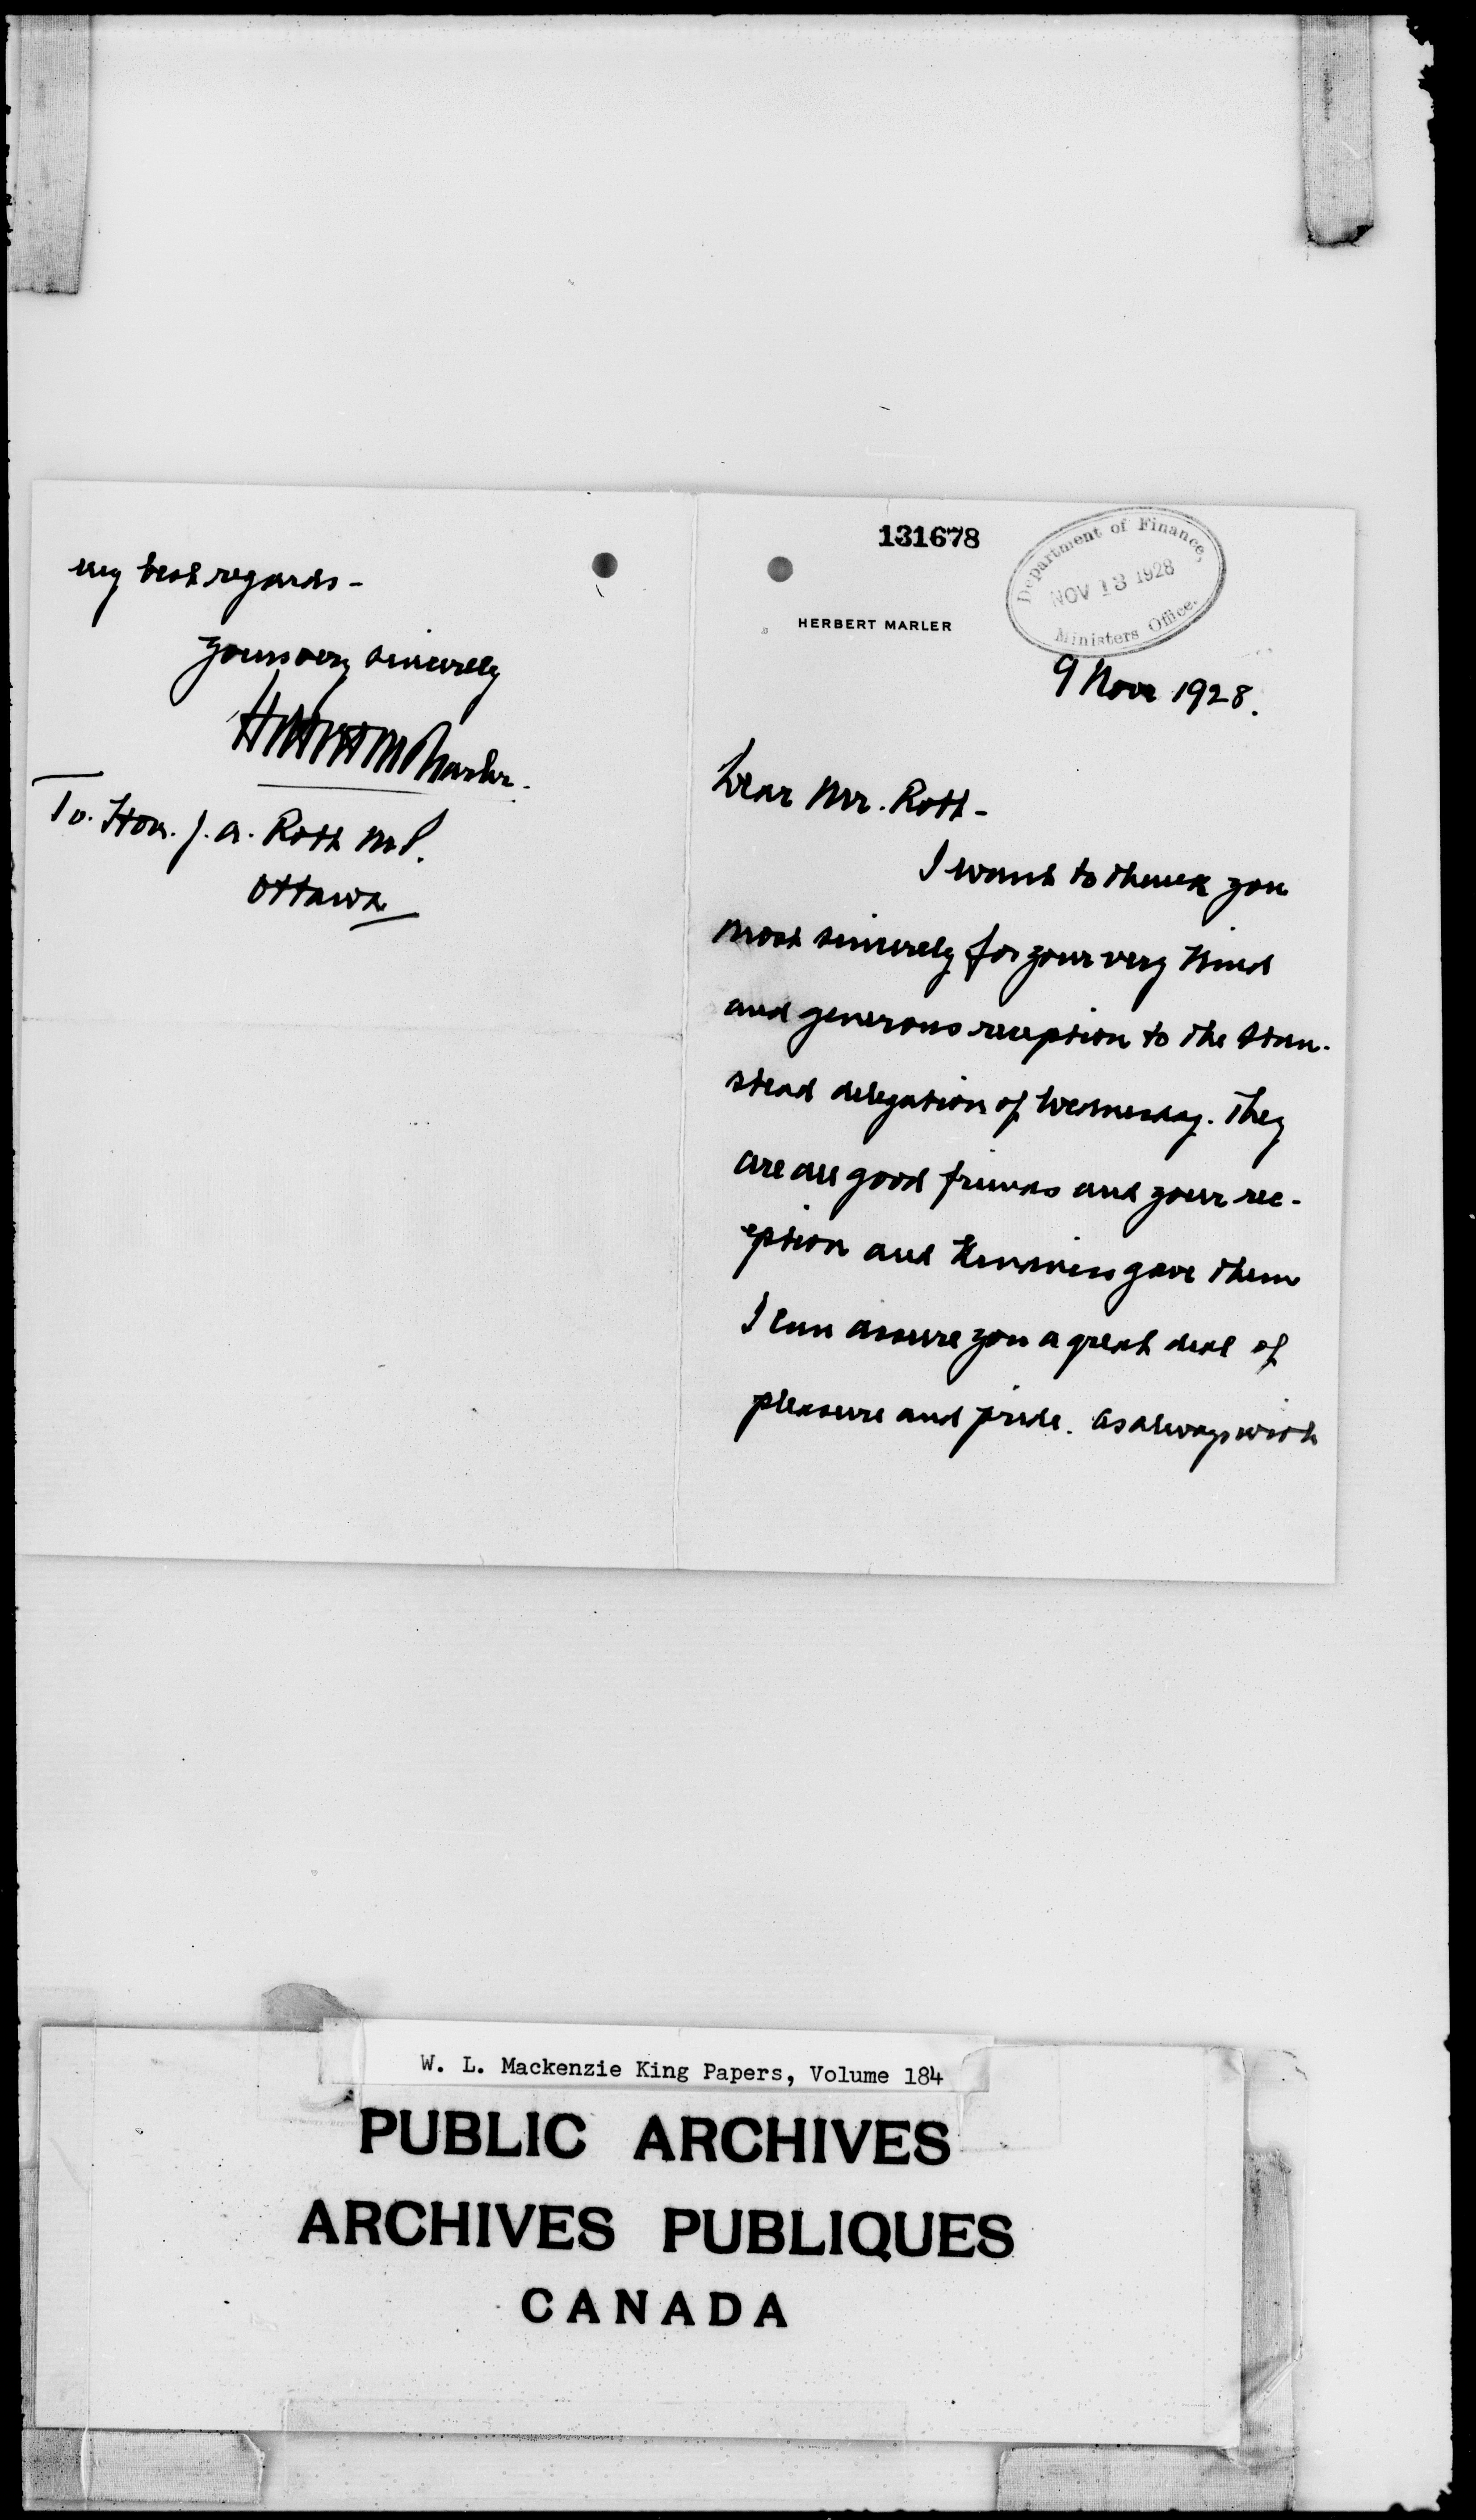 131678
Department of Finance,
NOV 13 1928
Ministers Office.
HERBERT MARLER
9 Nov 1928.
Dear Mr. Robb -
I want to thank you
most sincerely for your very kind
and generous reception to the Stan-
stead delegation of Wednesday. They
are all good friends and your rec-
eption and kindness gave them
I can assure you a great deal of
pleasure and pride. As always with
my best regards -
Yours very sincerely
Marler.
To. Hon. J. A. Robb M.P.
Ottawa
W. L. Mackenzie King Papers, Volume 184
PUBLIC ARCHIVES
ARCHIVES PUBLIQUES
CANADA